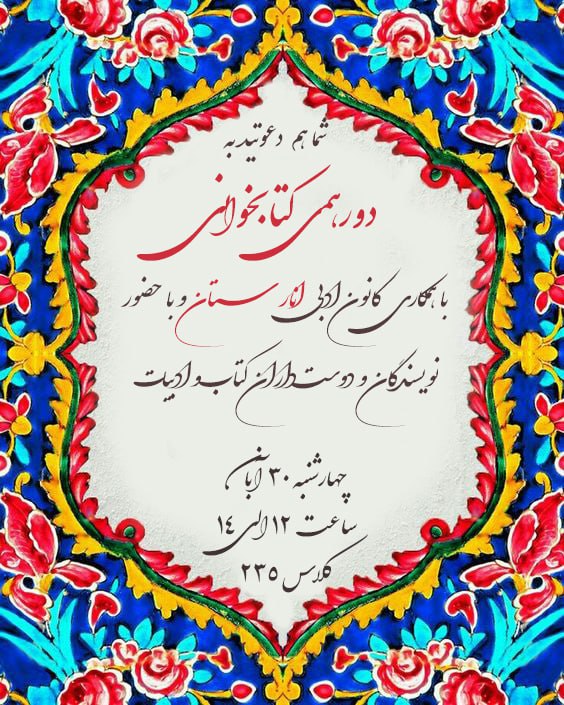 شما هم دعوتید به
دورهمی کتابخوانی
با همکاری کانون ادبی انارستان و با حضور
نویسندگان و دوست‌داران کتاب و ادبیات
چهارشنبه ۳۰ آبان
ساعت ۱۲ الی ۱۴
کلاس ۲۳۵